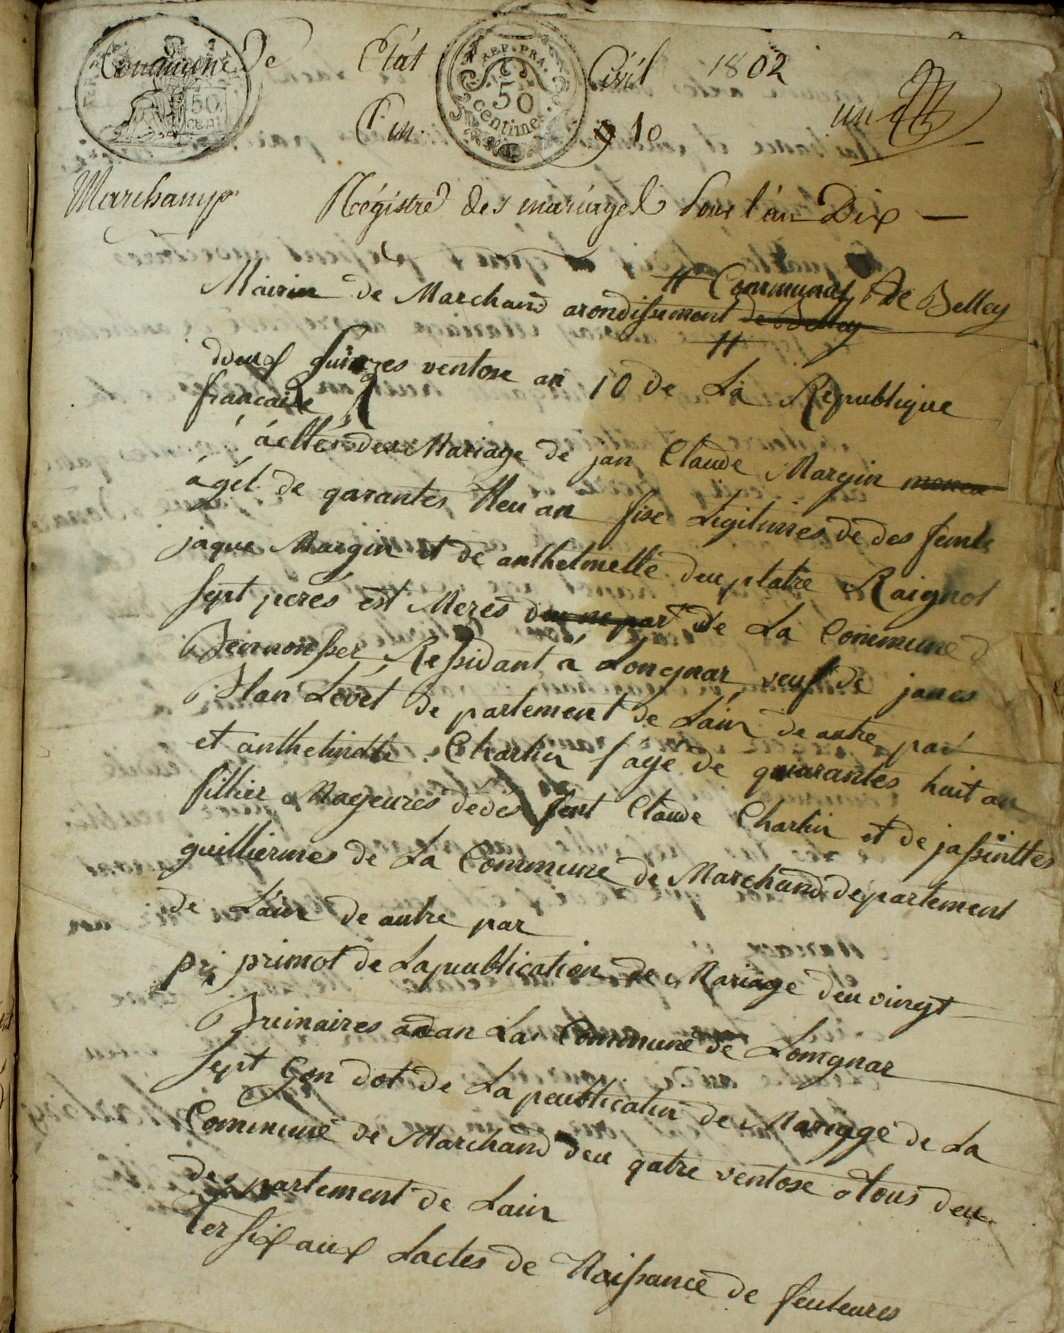 Commune De Etat Civil 1802
REP. FRA. 50 centimes
50 CENT
an 10 un
Marchamp Régistre des mariages pour l'an Dix —
Communal De Belley
Mairie de Marchand arondisement de Belley
deux quinzes ventose an 10 de La République
francaise
áctes deu Mariage de jan Claude Margin
ágét de qarantes neu an fise Ligitimes de des feint
jaque Margin et de anthelmette deuplatre Raignot
sept perés est Meres deu ne part de La Commune d
Ressidant á Longnar veuf de janes
Blan Levet de partement de Lain de autre par
et anthelmette Charlin fage de quarantes huit an
fillier Mageures dedes feint Claude Charlin et de jassinttes
guilliermes de La Commune de Marchand departement
de Lain de autre par
pri primot de Lapublication de Mariage deu vingt
primaires adan La Commune de Longnar
sept Gon dot de La publication de Mariage de La
Commune de Marchand deu qatre ventose átous deu
des partement de Lain
Ter six aux Lactes de Naissance de feuteures